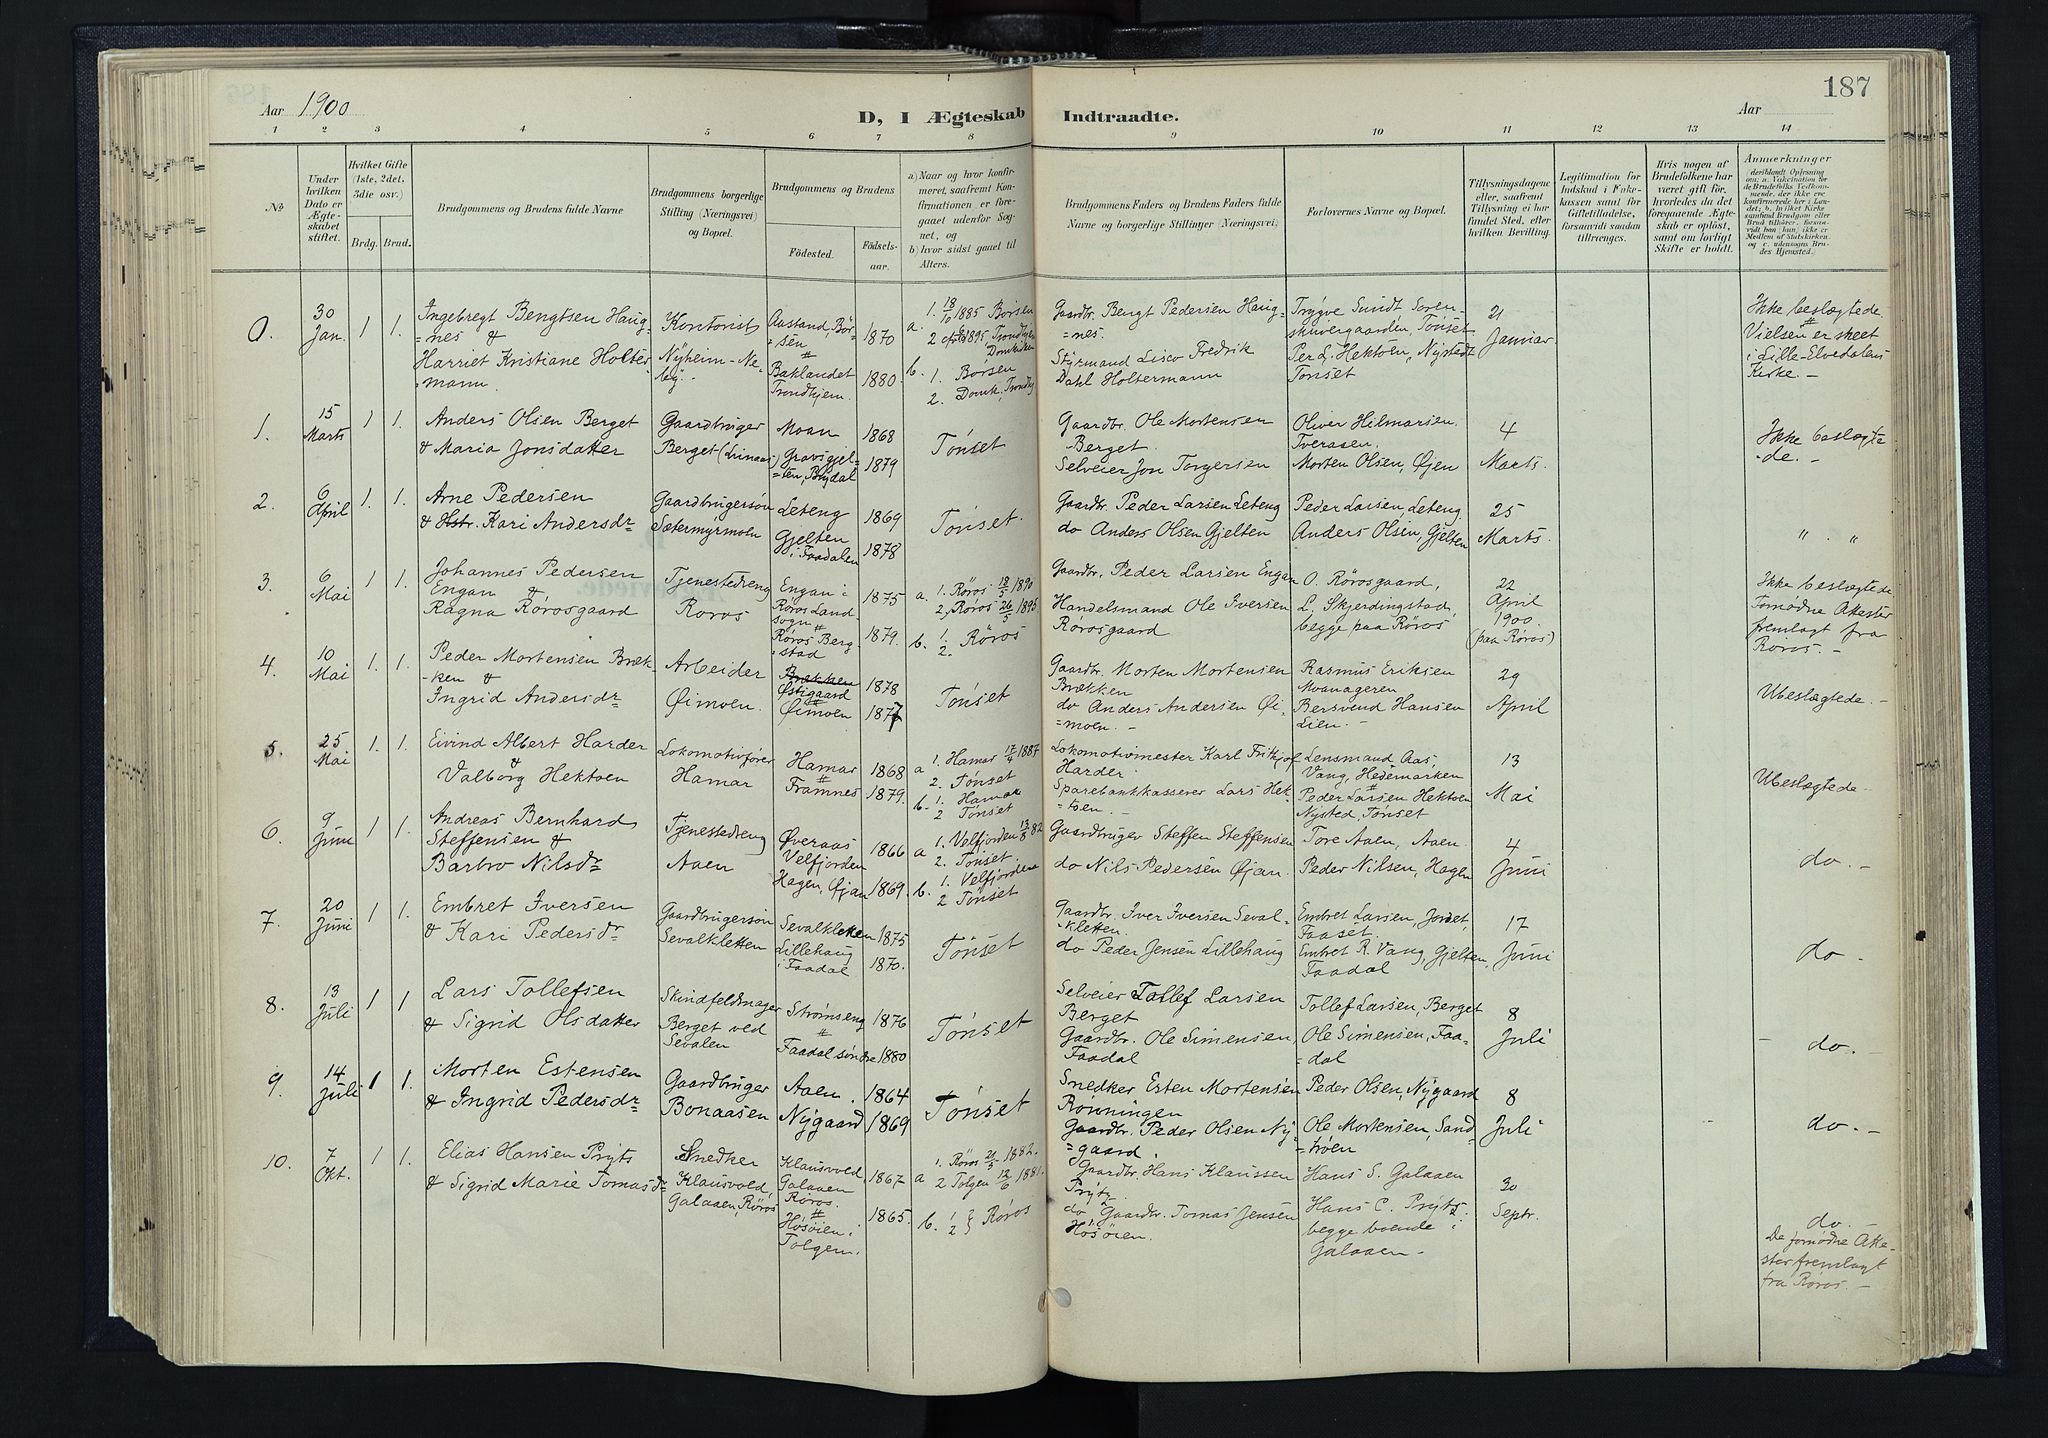 187
Aar 1900
D, I Ægteskab Indtraadte.
Aar
1 2 3 4 5 6 7 8 9 10 11 12 13 14
No
Under hvilken Dato er Ægteskabet stiftet.
Hvilket Gifte (1ste, 2det, 3die osv.)
Brdg. Brud.
Brudgommens og Brudens fulde Navne
Brudgommens borgerlige Stilling (Næringsvei) og Bopæl.
Brudgommens og Brudens
Födested. Födsels-aar.
a) Naar og hvor konfirmeret, saafremt Konfirmationen er foregaaet udenfor Sognet, og
b) hvor sidst gaaet til Alters.
Brudgommens Faders og Brudens Faders fulde Navne og borgerlige Stillinger (Næringsvei)
Forlovernes Navne og Bopæl.
Tillysningsdagene eller, saafremt Tillysning ei har fundet Sted, efter hvilken Bevilling.
Legitimation for Indskud i Enkekassen samt for Giftetilladelse, forsaavidt saadan tiltrænges.
Hvis nogen af Brudefolkene har været gift før, hvorledes da det foregaaende Ægteskab er oplöst, samt om lovligt Skifte er holdt.
Anmerkninger
0. 30 Jan. 1 1.
Ingebregt Bengtsen Haug-
=nes &
Harriet Kristiane Holter-
mann.
Kontorist
Nyheim - Ne-
by.
Aastand, Bör-
sen
Baklandet
Trondhjem.
1870
1880.
a. 1. 18/10 1885 Börsen
2 1895 Trondhjem
Domkirken
b. 1. Börsen
2. Domk. Trondhj
Gaardbr. Bengt Pedersen Haug-
=nes.
Styrmand Lisco Fredrik
Dahl Holtermann
Trygve Sundt Soren-
skrivergaarden, Tönset
Per L. Hektoen, Nystedt
Tönset
21
Januar
Ikke beslægtede
Vielsen er skeet
i Lille-Elvedalens
Kirke. -
1. 15 Marts 1 1.
Anders Olsen Berget
& Maria Jonsdatter
Gaardbruger
Berget
Moan
Gravsgjel-
=ten, Brydal
1868
1879
Tønset
Gaardbr. Ole Mortensen
Berget.
Selveier Jon Torgersen
Oliver Hilmarsen
Tveraaen.
Morten Olsen, Øjen
4
Marts.
Ikke beslægte
de. -
2. 6 April 1. 1.
Arne Pedersen
& Kari Andersdr
Gaardbrugersøn
Sætermyrmoen
Leteng
Gjelten
i Faadalen
1869
1878
Tønset.
Gaardbr. Peder Larsen Leteng
do Anders Olsen Gjelten
Peder Larsen, Leteng
Anders Olsen, Gjelten
25
Marts.
" . "
3. 6 Mai 1 1.
Johannes Pedersen
Engan &
Ragna Rørosgaard
Tjenestedreng
Røros
Engan i
Røros Land-
sogn
Røros Berg-
stad
1875
1879.
a. 1. Røros 18/5 1890
2, Røros 26/5 1895
b. 1. 2. Røros
Gaardbr. Peder Larsen Engan
Handelsmand Ole Iversen
Rørosgaard
O. Rørosgaard,
L. Skjerdingstad,
begge paa Røros
22
April
1900.
(paa Røros)
Ikke beslægtede
Fornødne Attester
fremlagt fra
Røros. -
4. 10 Mai 1. 1.
Peder Mortensen Bræk-
ken &
Ingrid Andersdr
Arbeider
Øimoen.
Brækken
Østigaard
Øimoen
1878
1877
Tønset
Gaardbr. Morten Mortensen
Brækken
do Anders Andersen Øi-
=moen. -
Rasmus Eriksen
Moanageren
Bersvend Hansen
Lien. -
29
April
Ubeslægtede. -
5. 25 Mai 1. 1.
Eivind Albert Harder
&
Valborg Hektoen
Lokomotivfører
Hamar
Hamar
Framnes
1868
1879.
a 1. Hamar 17/4 1887
2. Tønset
b. 1. Hamar
2 Tønset
Lokomotivmester Karl Fritjof
Harder
Sparebankkasserer Lars Hek-
=toen. -
Lensmand Aas,
Vang, Hedemarken
Peder Larsen Hektoen
Nysted, Tønset
13
Mai
Ubeslægtede. -
6. 9 Juni 1 1.
Andreas Bernhard
Steffensen &
Barbro Nilsdr
Tjenestedreng
Aaen
Øveraas
Velfjorden
Hagen, Øjan
1866
1869.
a 1. Velfjorden 13/8 82
2. Tønset.
b. 1. Velfjorden
2 Tønset
Gaardbruger Steffen Steffensen
do Nils Pedersen Øjan.
Tore Aaen, Aaen
Peder Nilsen, Hagen
4
Juni
do. -
7. 20 Juni 1 1.
Embret Iversen
& Kari Pedersdr
Gaardbrugersøn
Sevalkletten
Sevalkletten
Lillehaug
i Faadal
1875
1870.
Tønset
Gaardbr. Iver Iversen Seval-
kletten.
do Peder Jensen Lillehaug
Embret Larsen, Jordet,
Faaset.
Embret R. Vang, Gjelten,
Faadal
17
Juni
do -
8. 13 Juli 1 1
Lars Tollefsen
& Sigrid Olsdatter
Skindfeldmager
Berget ved
Sevalen
Strømseng
Faadal søndre
1876
1880
Tønset
Selveier Tollef Larsen
Berget
Gaardbr. Ole Simensen,
Faadal
Tollef Larsen, Berget
Ole Simensen, Faa-
=dal
8
Juli
do. -
9. 14 Juli 1 1.
Morten Estensen
& Ingrid Pedersdr
Gaardbruger
Bonaasen
Aaen.
Nygaard
1864
1869
Tønset
Snedker Esten Mortensen
Rønningen
Gaardbr. Peder Olsen Ny-
=gaard.
Peder Olsen, Nygaard
Ole Mortensen, Sand-
trøen
8
Juli
do. -
10. 7 Okt. 1 1.
Elias Hansen Prÿts
& Sigrid Marie Tomasdr
Snedker
Klausvold,
Galaaen, Røros
Klausvold
Galaaen
Røros.
Høsøien i
Tolgen.
1867
1865.
a 1. Røros 1882.
2 Tolgen 12/6 1881.
b. 1 2 } Røros
Gaardbr. Hans Klaussen
Prytz.
do Gaardbr. Tomas Jensen
Høsøien.
Hans S. Galaaen
Hans C. Prÿtz
begge boende i
Galaaen -
30
Septr.
do. -
De fornødne Atte-
ster fremlagt
fra Røros. -